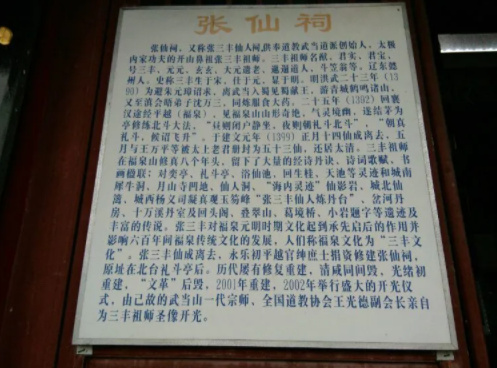 张仙祠
张仙祠，又称张三丰仙人祠，供奉道教武当道派创始人，太极
内家功夫的开山鼻祖张三丰祖师。三丰祖师名猷，君实，君宝，
号三丰、元元、玄玄、大元遗老、邋遢道人、斗笠翁等。辽东懿
州人。史称三丰生于宋，仕于元，显于明。明洪武二十三年（139
0）为避朱元璋诏求，离武当入蜀见蜀献王，游青城鹤鸣诸山，
又至滇会晤弟子沈万三，同炼服食大药。二十五年（1392）回襄
汉途经平越（福泉），见福泉山山形奇绝，气灵境幽，遂结茅为
亭修炼北斗大法，“昼则闭户静坐，夜则朝礼斗北斗”，“朝真
礼斗，候诏飞升”，于建文元年（1399）正月十四仙成离去，五
月与王万平等被太上老君册封为五十三仙，还居太清。三丰祖师
在福泉山修真八个年头，留下了大量的经诗丹诀，诗词歌赋，书
画楹联；对奕亭、礼斗亭、浴仙池、回生桂、天池等灵迹和城南
犀牛洞，月山寺凹地、仙人洞、“海内灵迹”仙影岩、城北仙
篱、城西杨义司凝真观玉笏峰“张三丰仙人炼丹台”、岔河丹
房、十万溪丹室及回头阁、叠翠山、葛境桥、小岩题字等遗迹及
丰富的传说。张三丰对福泉元明时期文化起到承先启后的作用并
影响六百年间福泉传统文化的发展，人们称福泉文化为“三丰文
化”。张三丰仙成离去，永乐初平越官绅庶士捐资修建张仙祠，
原址在北台礼斗亭后。历代屡有修复重建，清咸同间毁，光绪初
重建，“文革”后毁，2001年重建，2002年举行盛大的开光仪
式，由已故的武当山一代宗师、全国道教协会王光德副会长亲自
为三丰祖师圣像开光。